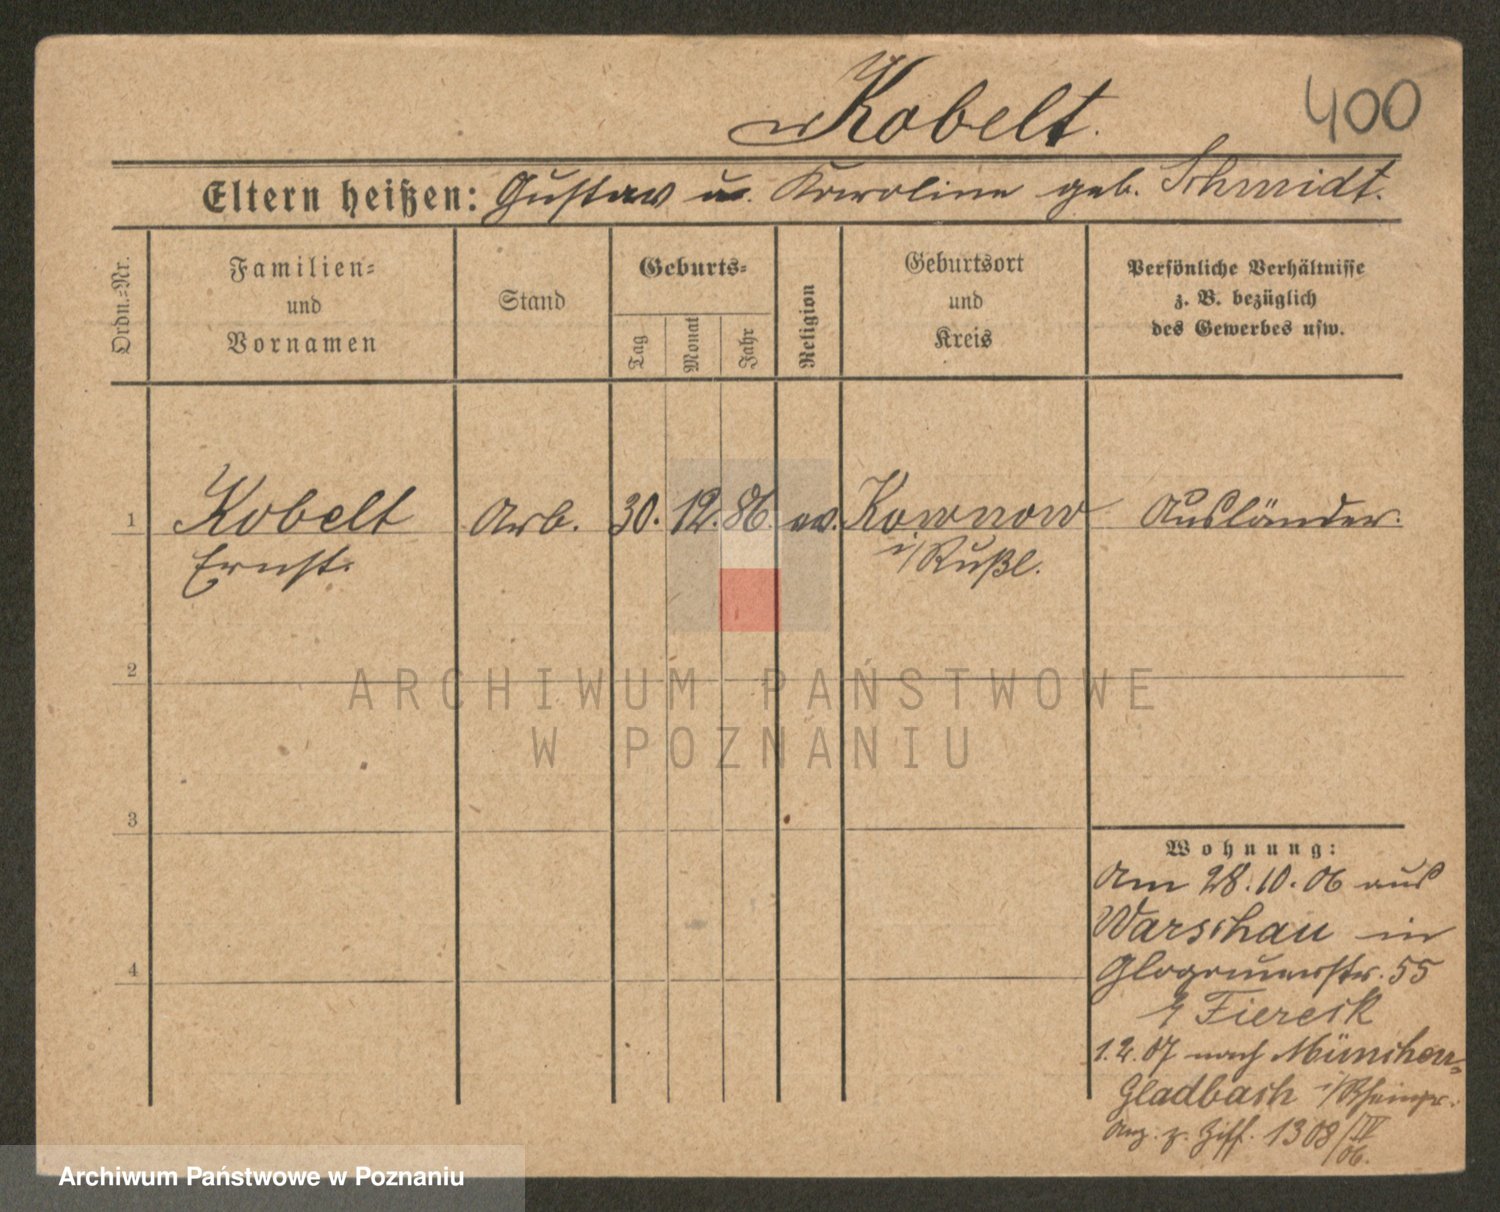 Kobelt.
400
Eltern heißen: Gustav u. Karoline geb. Schmidt.
Ordn.-Nr.
Familien-
und
Vornamen
Stand
Geburts-
Tag
Monat
Jahr
Religion
Geburtsort
und
Kreis
Persönliche Verhältnisse
z. B. bezüglich
des Gewerbes usw.
1 Kobelt Arb. 30. 12. 86. ev. Kownow Ausländer.
Ernst. i/Rußl.
2
ARCHIWUM PAŃSTWOWE
W POZNANIU
3
Wohnung:
Am 28.10.06 aus
Warschau in
4
Glogauerstr. 55
Fiereck
1.2.07 nach München-
Gladbach i/Rheinpr.
Anz. z. Ziff. 1308/IV
06.
Archiwum Państwowe w Poznaniu